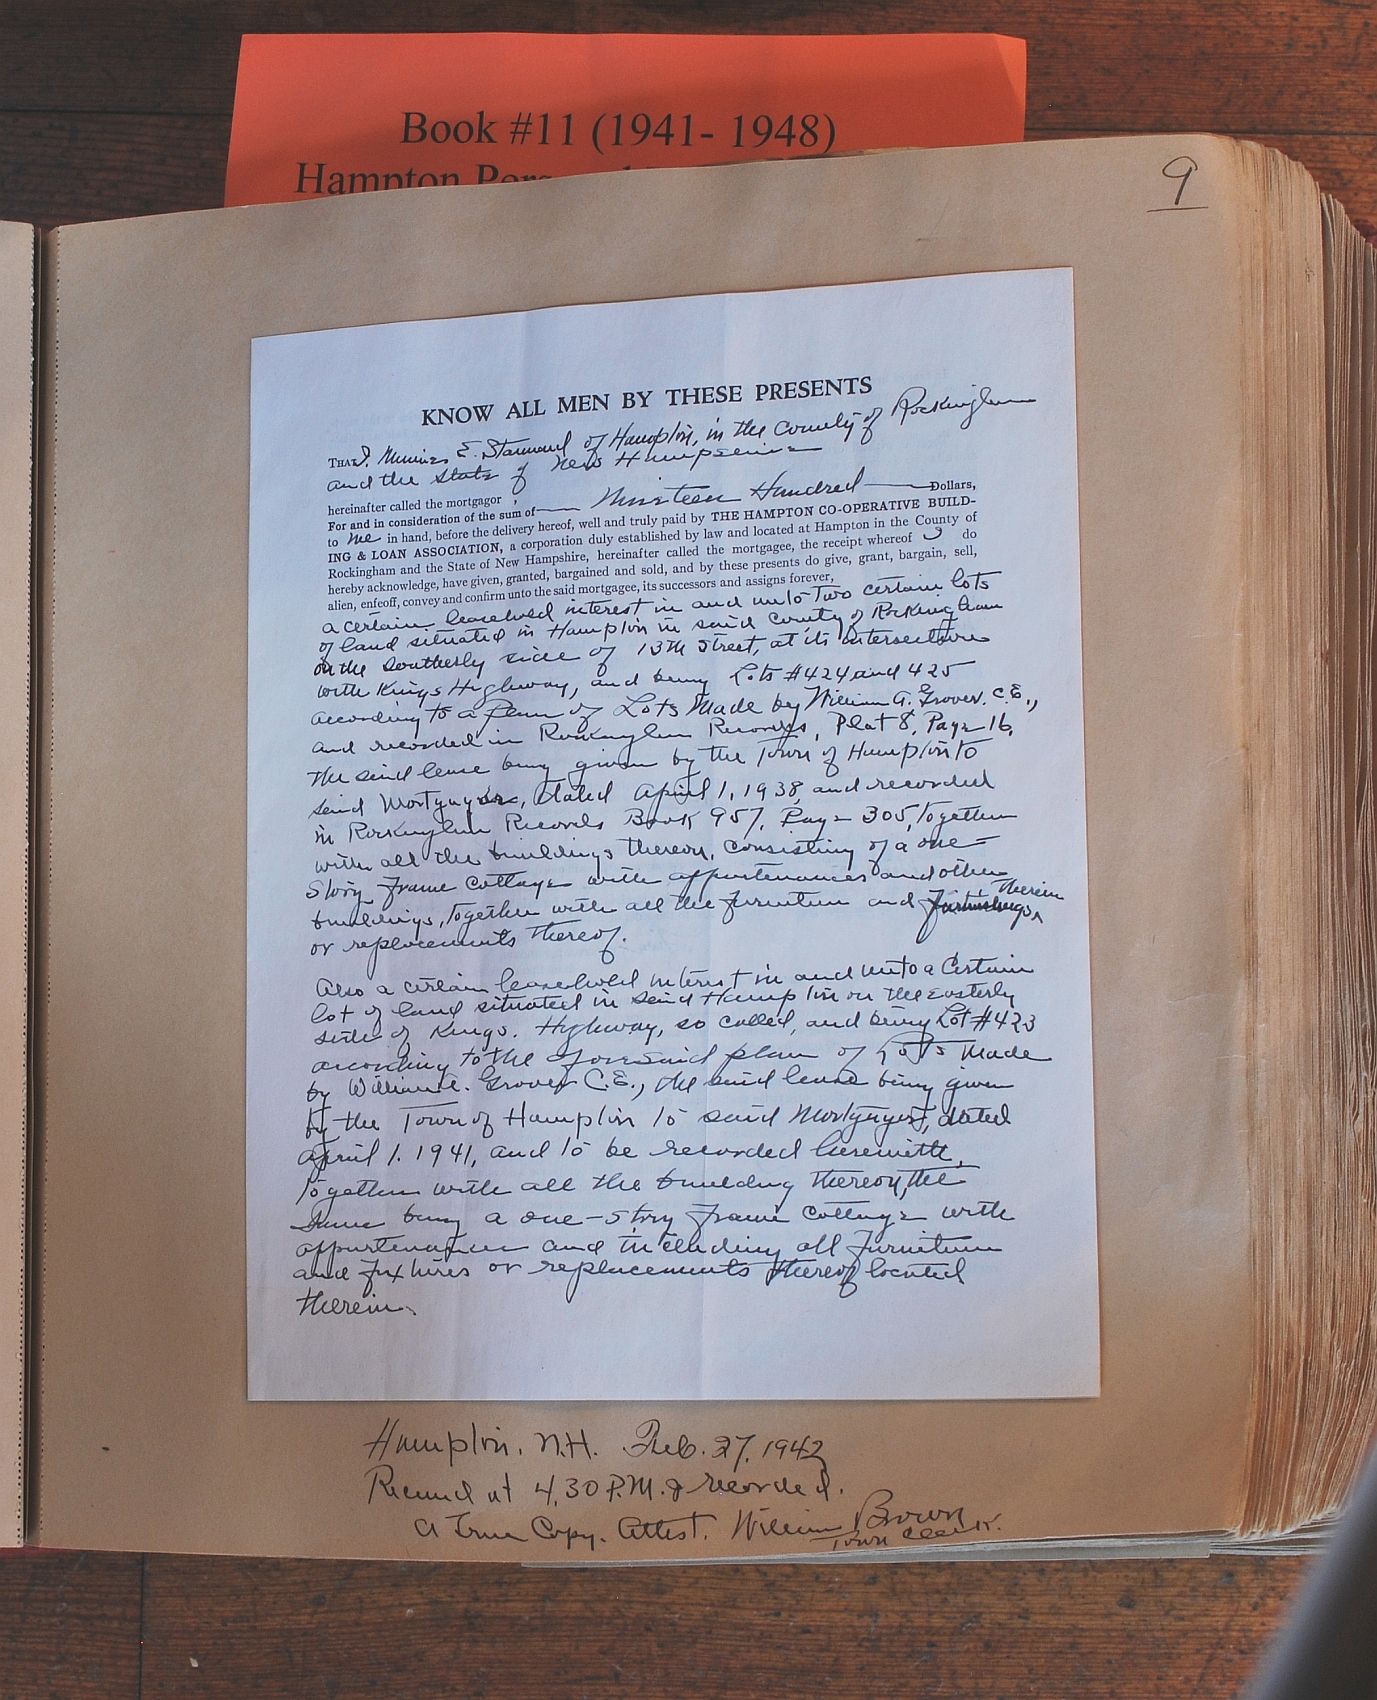 Book #11 (1941- 1948)
Hampton
9
KNOW ALL MEN BY THESE PRESENTS
THAT I, E. Stanwood of Hampton, in the County of Rockingham
and the State of New Hampshire
hereinafter called the mortgagor ,
For and in consideration of the sum of Nineteen Hundred Dollars,
to me in hand, before the delivery hereof, well and truly paid by THE HAMPTON CO-OPERATIVE BUILD-
ING & LOAN ASSOCIATION, a corporation duly established by law and located at Hampton in the County of
Rockingham and the State of New Hampshire, hereinafter called the mortgagee, the receipt whereof I do
hereby acknowledge, have given, granted, bargained and sold, and by these presents do give, grant, bargain, sell,
alien, enfeoff, convey and confirm unto the said mortgagee, its successors and assigns forever,
a certain leasehold interest in and unto Two certain lots
of land situated in Hampton in said County of Rockingham
on the Southerly side of 13th Street, at its intersection
with Kings Highway, and being Lots #424 and 425
according to a plan of Lots Made by William A. Grover. C.E.,
and recorded in Rockingham Records, Plat 8, Page 16,
the said lease being given by the Town of Hampton to
said Mortgagor, dated April 1, 1938, and recorded
in Rockingham Records Book 957, Page 305, Together
with all the buildings thereon, consisting of a one-
Story frame cottage with appurtenances and other
buildings, Together with all the furniture and furnishings, therein
or replacements thereof.
Also a certain leasehold interest in and unto a Certain
lot of land situated in said Hampton on the Easterly
side of Kings. Highway, so called, and being Lot #423
according to the aforesaid plan of Lots Made
by William A. Grover C.E., the said lease being given
by the Town of Hampton to said Mortgagor, dated
April 1. 1941, and to be recorded herewith,
Together with all the building thereon, the
same being a one-story frame cottage with
appurtenances and including all furniture
and fixtures or replacements thereof located
therein.
Hampton, N.H. Feb. 27, 1942
Received at 4,30 P.M. & recorded.
A True Copy. Attest. William Brown
Town Clerk.